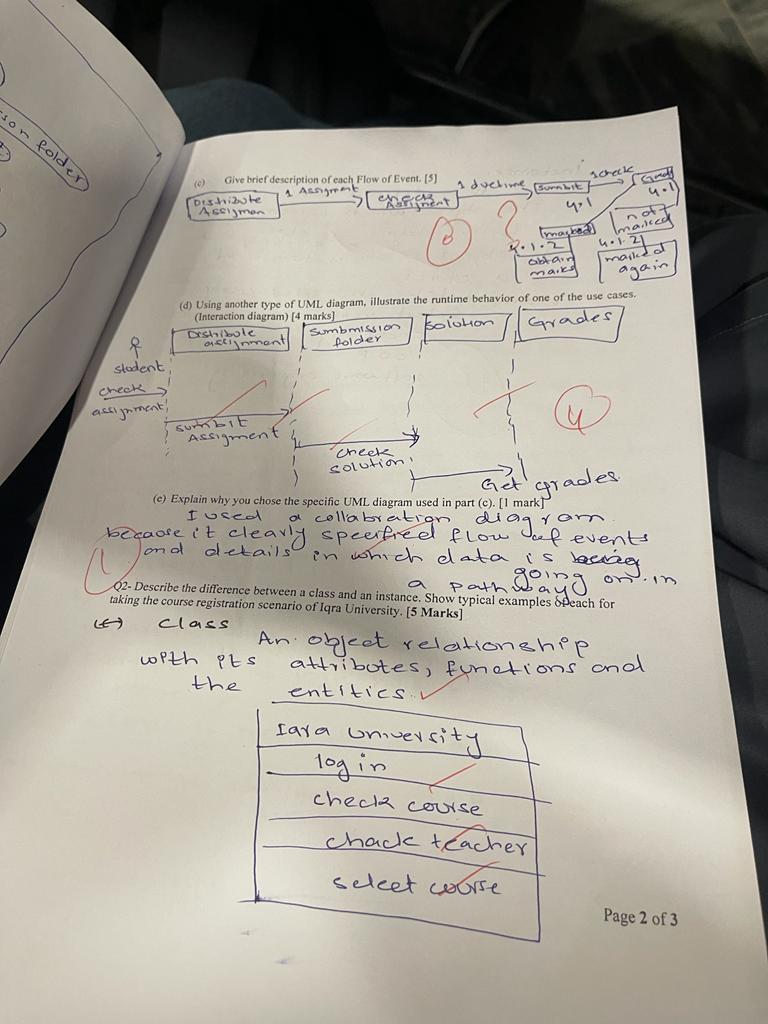 son folder
(c) Give brief description of each Flow of Event. [5]
Distribute Assigman
1 Assigment
check Assignment
1 duetime
Sumbit
1 check
Grad
4.1
4.1
marked
not marked
4.1.2
4.1.2
obtain marks
marked again
?
(d) Using another type of UML diagram, illustrate the runtime behavior of one of the use cases.
(Interaction diagram) [4 marks]
Distribute assignment
Sumbmission folder
Solution
Grades
student
check
assignment
sumbit
Assigment
check
solution
Get grades
4
(e) Explain why you chose the specific UML diagram used in part (c). [1 mark]
I used a collabration diagram
because it clearly specified flow of events
and details in which data is being
going on in
a pathway
1
Q2- Describe the difference between a class and an instance. Show typical examples of each for
taking the course registration scenario of Iqra University. [5 Marks]
Class
An object relationship
with its attributes, functions and
the entities.
Iqra University
log in
check course
chack teacher
select course
Page 2 of 3